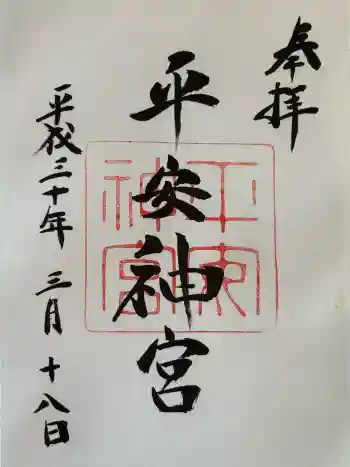 奉拝
平安神宮
平安
神宮
平成三十年 三月 十八日